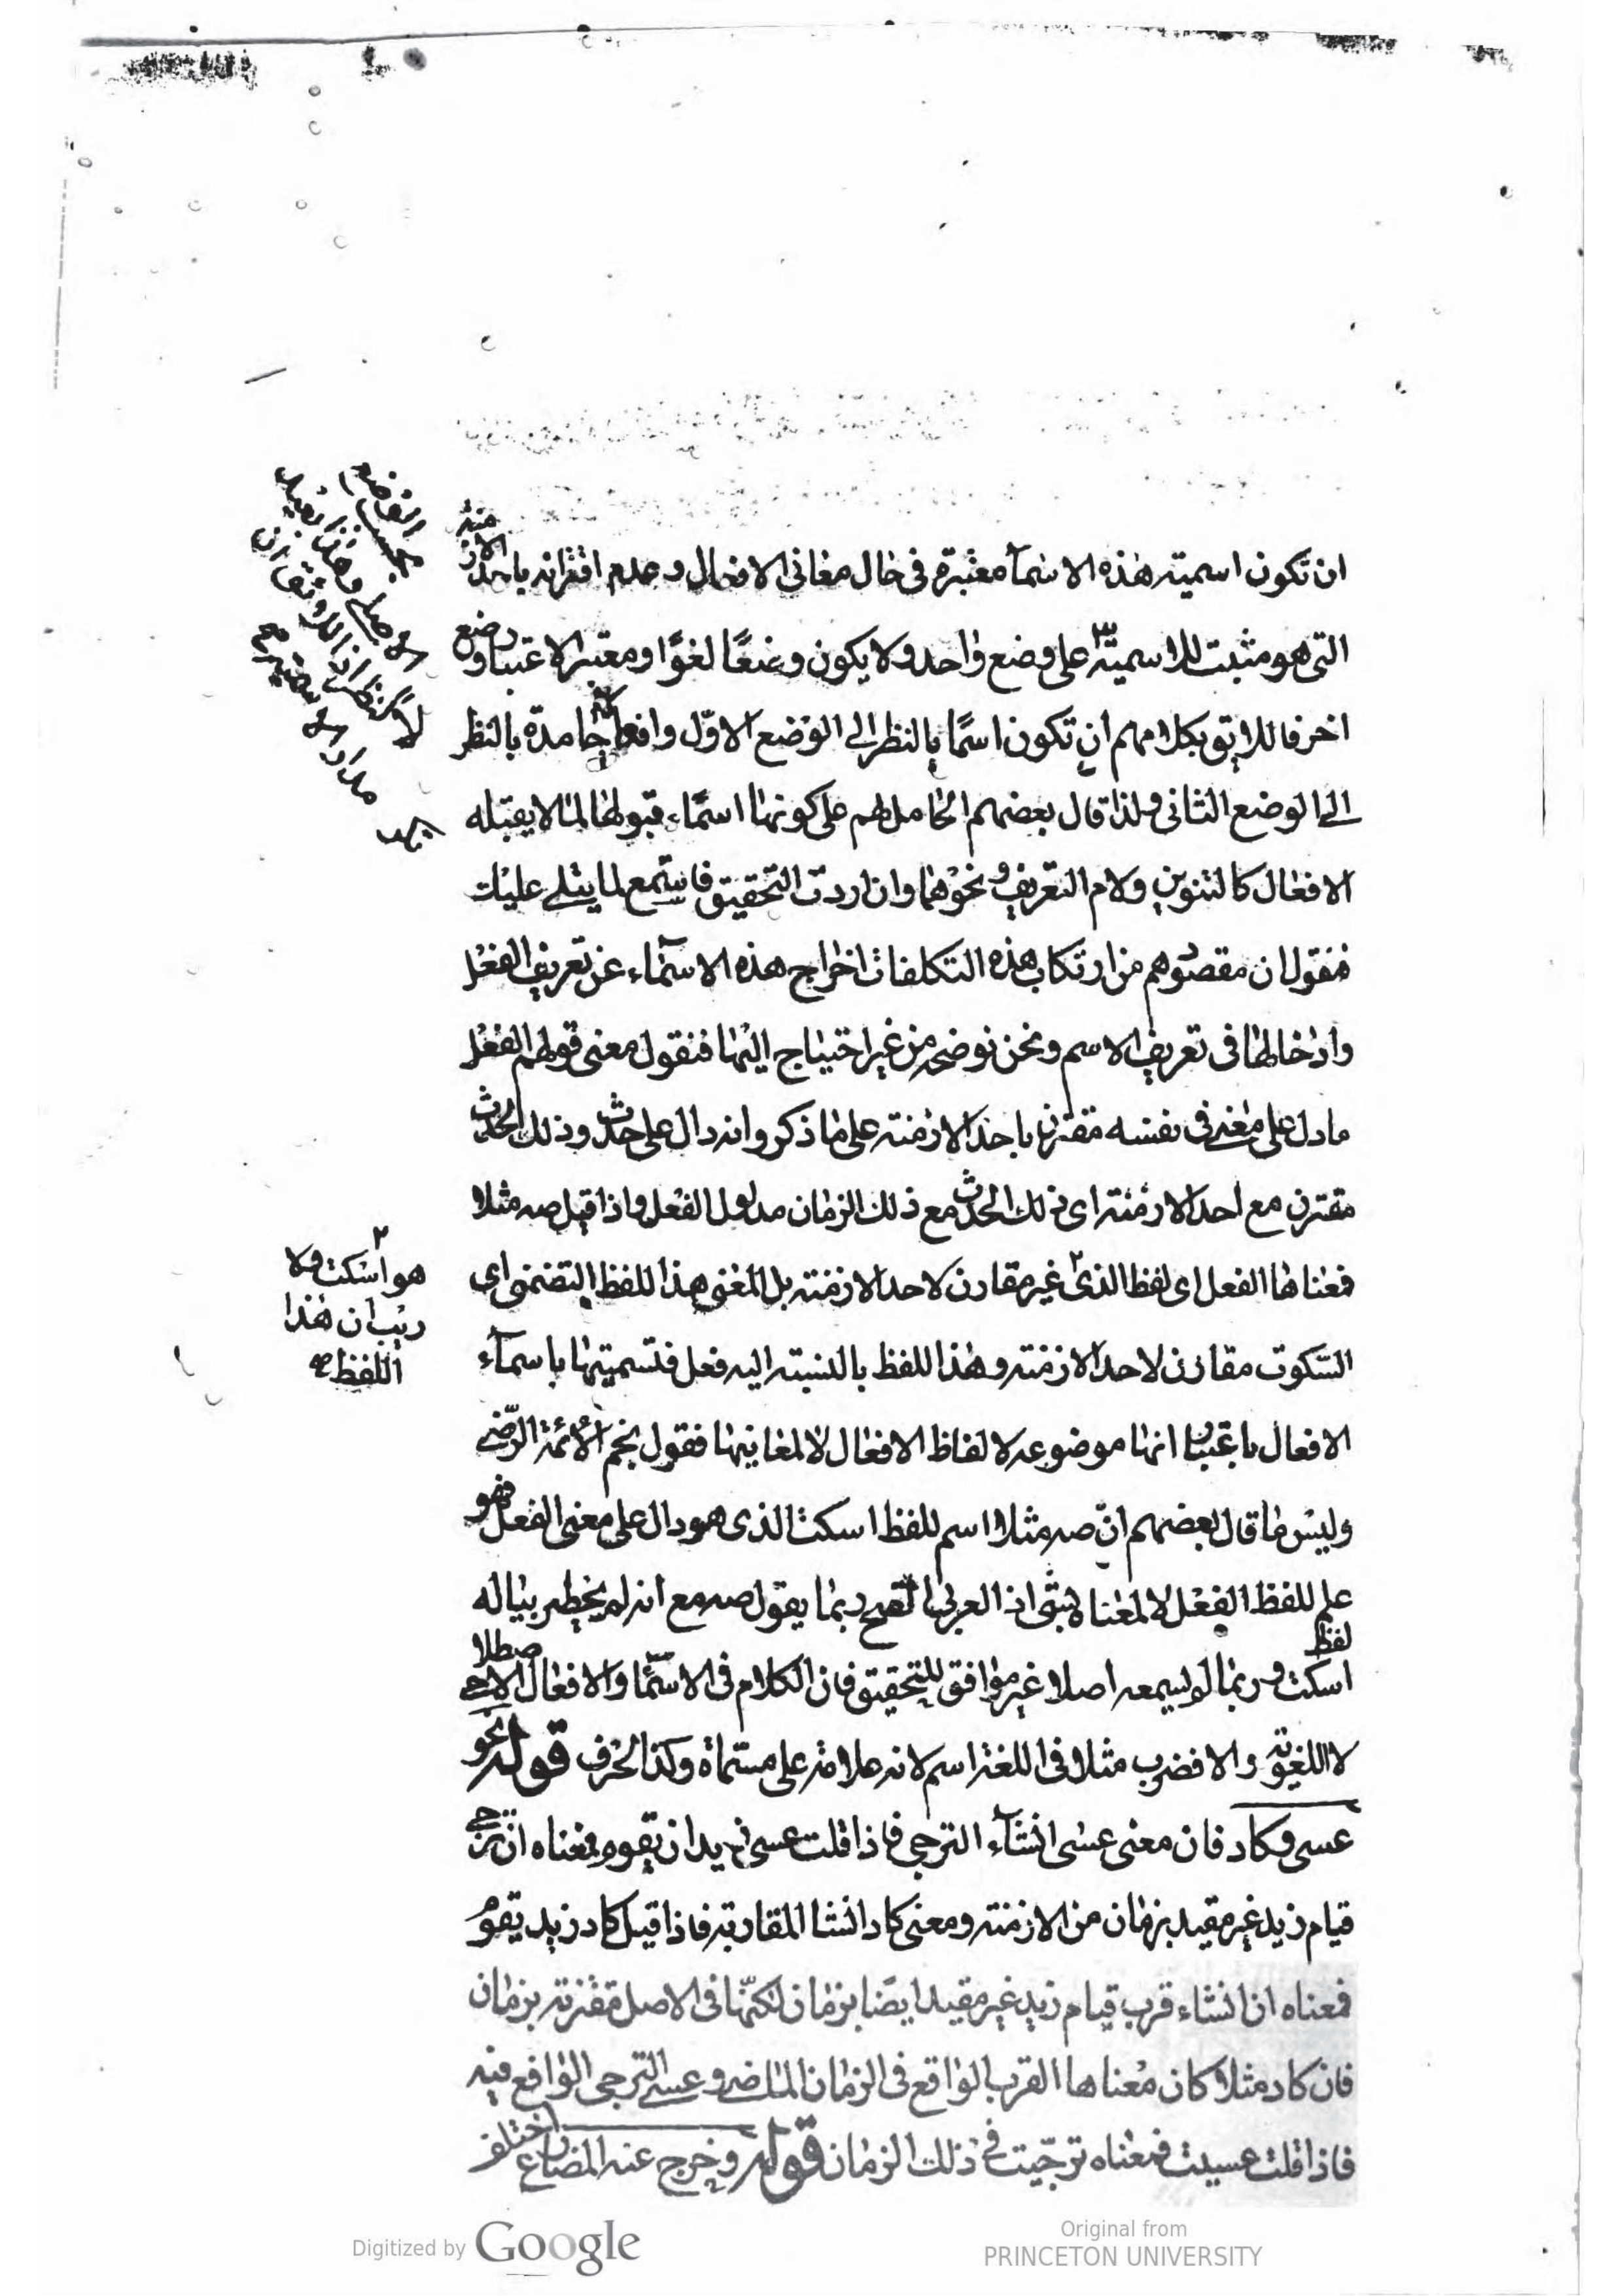 ان تكون اسمية هذه الاسمآء معتبرة فى حال معانى الافعال وعدم اقترانه باحد الازمنة
التى هو مثبت للاسمية على وضع واحد ولا يكون وضعًا لغوًا ومعتبر الاعتبار وضع
اخر فاللايق بكلامهم ان تكون اسمًا بالنظر الى الوضع الاوّل وافعالا جامدة بالنظر
الى الوضع الثانى ولذا قال بعضهم الحامل لهم على كونها اسمًاء قبولها لما لا يقبله
الافعال كالتنوين ولام التعريف ونحوهما وان اردت التحقيق فاستمع لما يتلى عليك
فنقول ان مقصودهم من ارتكاب هذه التكلفات اخراج هذه الاسمآء عن تعريف الفعل
وادخالها فى تعريف الاسم ونحن نوضحه من غير احتياج اليها فنقول معنى قولهم الفعل
ما دل على معنى فى نفسه مقترن باحد الازمنة على ما ذكروا انه دال على حدث وذلك الحدث
مقترن مع احد الازمنة اى ذلك الحدث مع ذلك الزمان مدلول الفعل واذا قيل صه مثلا
فمعناها الفعل اى لفظ الذى غير مقارن لاحد الازمنة بل المعنى هذا للفظ التضمنى اى
السّكوت مقارن لاحد الازمنة وهذا اللفظ بالنسبة اليه فعل فتسميتها باسمآء
الافعال باعتبار انها موضوعه لالفاظ الافعال لا لمعانيها فقول نجم الأئمة الرّضى
وليس ما قال بعضهم انّ صه مثلا اسم للفظ اسكت الذى هو دال على معنى الفعل فهو
علم للفظ الفعل لا لمعناه بشئ اذ العربى القح ربما يقول صه مع انه لم يخطر بباله
لفظ
اسكت وربما لم يسمعه اصلا غير موافق للتحقيق فان الكلام فى الاسمآء والافعال الاصطلاحى
لا اللغوية والا فضرب مثلا فى اللغة اسم لانه علامة على مسماة وكذا الحرف قوله نحو
عسى وكاد فان معنى عسى انشآء الترجى فاذا قلت عسى زيد ان يقوم فمعناه ان ترجى
قيام زيد غير مقيد بزمان من الازمنة ومعنى كاد انشا المقاربة فاذا قيل كاد زيد يقوم
فمعناه ان انشاء قرب قيام زيد غير مقيد ايضًا بزمان لكنّها فى الاصل مقترنة بزمان
فان كاد مثلا كان معناها القرب الواقع فى الزمان الماضى وعسى الترجى الواقع فيه
فاذا قلت عسيت فمعناه ترجّيت فى ذلك الزمان قوله وخرج عنه المضارع اختلف
هو اسكت ولا
ريب ان هذا
اللفظ صح
Digitized by Google
Original from
PRINCETON UNIVERSITY